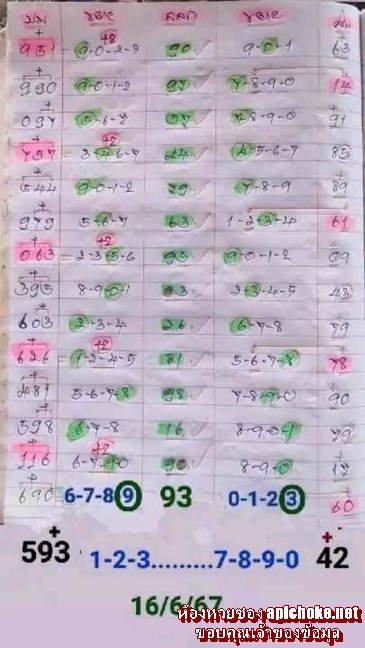 บน ขยาย ออก ขยาย ล่าง
+2
951 = 9-0-2-3 90 9-0-1 63
990 9-0-1-2 97 7-8-9-0 14
097 5-6-7 07 7-8-9-0 91
+2
757 = 3-4-6-7 44 4-5-6-7 85
544 9-0-1-2 79 7-8-9 89
979 5-6-7 63 1-2-3-4 61
+2
063 = 2-3-5-6 95 9-0-1-2 09
395 8-9-0-1 03 2-3-4-5 43
603 2-3-4 26 6-7-8 79
+2
626 = 1-2-4-5 81 5-6-7-8 78
481 5-6-7-8 98 7-8-9-0 90
598 6-7-8 16 8-9-0-1 79
+2
116 6-7-9-0 90 8-9-0 17
690 6-7-8-9 93 0-1-2-3 60
+ +
593 1-2-3.........7-8-9-0 42
16/6/67
ห้องหวยซอง apichoke.net
ขอบคุณเจ้าของข้อมูล